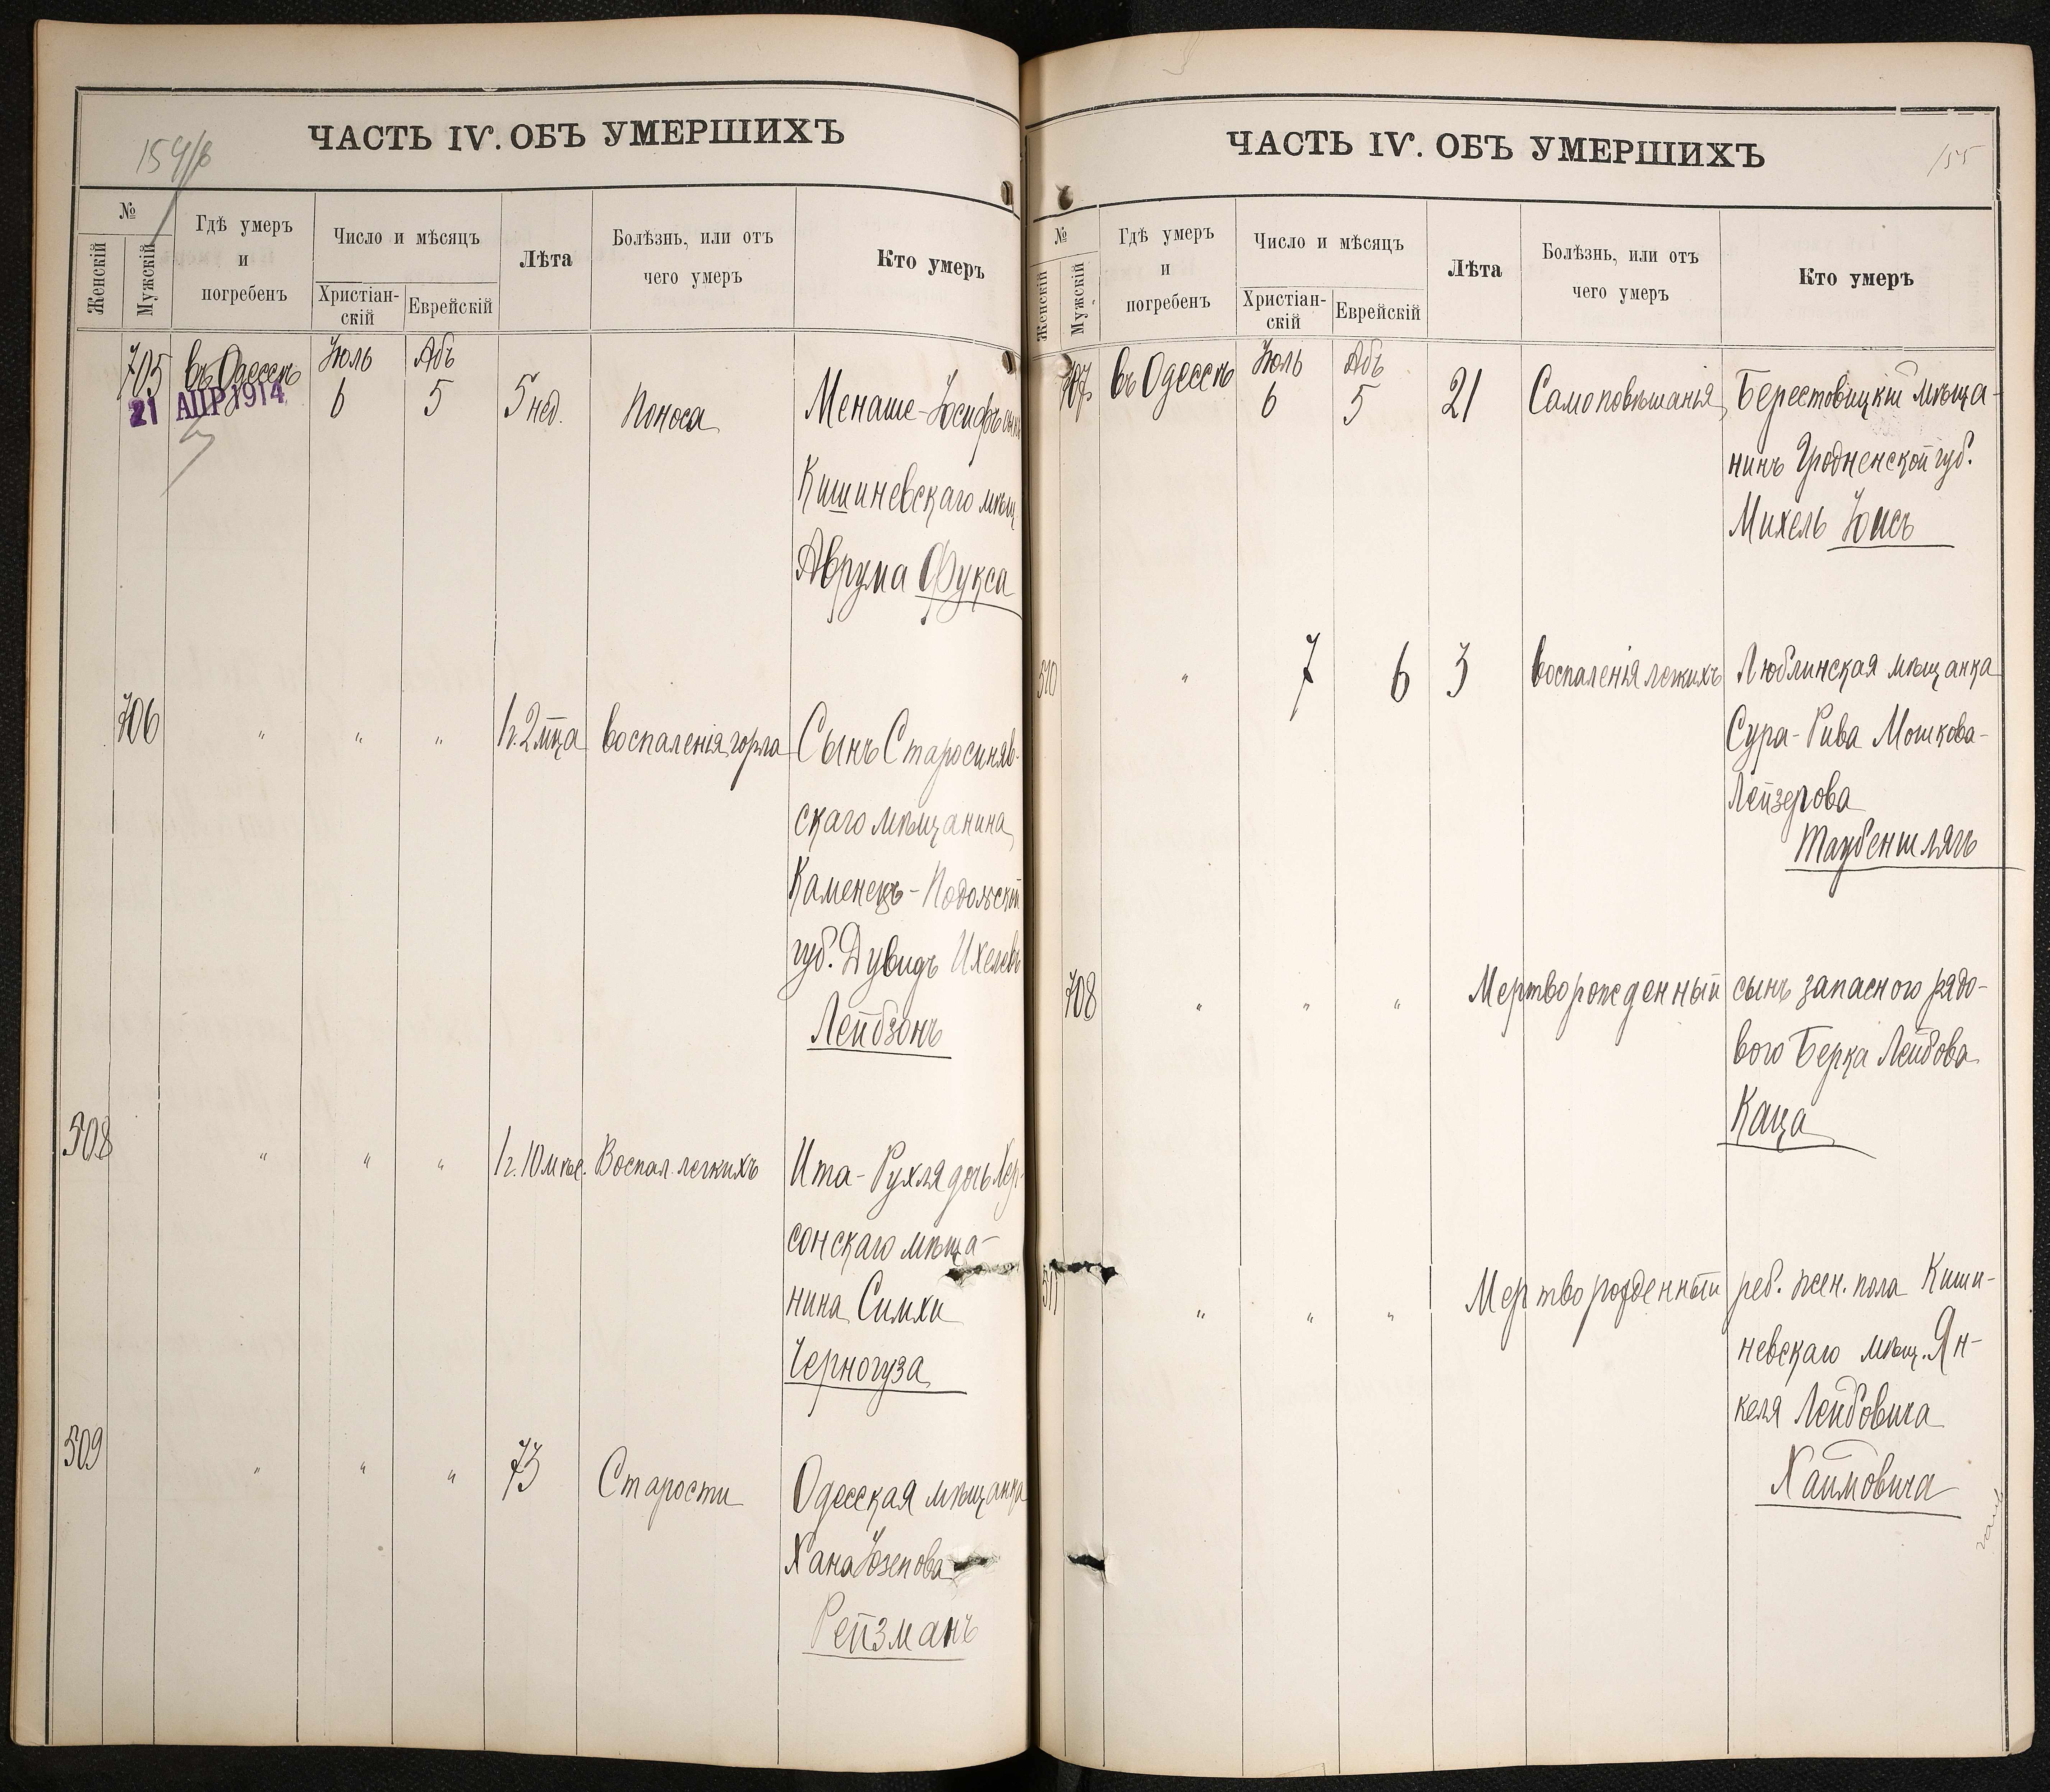 ЧАСТЬ IV. ОБЪ УМЕРШИХЪ
№
Женскій
Мужскій
Гдѣ умеръ
и
погребенъ
Число и мѣсяцъ
Христіан-
скій
Еврейскій
Лѣта
Болѣзнь, или отъ
чего умеръ
Кто умеръ
705 въ Одессѣ Іюль Абъ
21 АПР 1914
6 5 5 нед. Поноса Менаше-Іосифъ сынъ
Кишиневскаго мѣщ
Аврума Фукса
706 " " " 1 г. 2 мца воспаленія горла Сынъ Старосиняв-
скаго мѣщанина
Каменецъ-Подольской
губ. Дувидъ Ихелевъ
Лейбзонъ
508 " " " 1 г. 10 мѣс. Воспал. легкихъ Ита-Рухля дочь Хер-
сонскаго мѣща-
нина Симхи
Черногуза
509 " " " 73 Старости Одесская мѣщанка
Хана Іозепова
Рейзманъ
ЧАСТЬ IV. ОБЪ УМЕРШИХЪ
155
№
Женскій
Мужскій
Гдѣ умеръ
и
погребенъ
Число и мѣсяцъ
Христіан-
скій
Еврейскій
Лѣта
Болѣзнь, или отъ
чего умеръ
Кто умеръ
707 въ Одессѣ Іюль Абъ
6 5 21 Самоповѣшанія Берестовицкій мѣща-
нинъ Гродненской губ.
Михель Юисъ
510 " 7 6 3 воспаленія легкихъ Люблинская мѣщанка
Сура-Рива Мошкова-
Лейзерова
Таубеншлягъ
708 " " " Мертворожденный сынъ запасного рядо-
вого Берка Лейбова
Каца
511 " " " Мертворожденный реб. жен. пола Киши-
невскаго мѣщ. Ян-
келя Лейбовича
Хаимовича